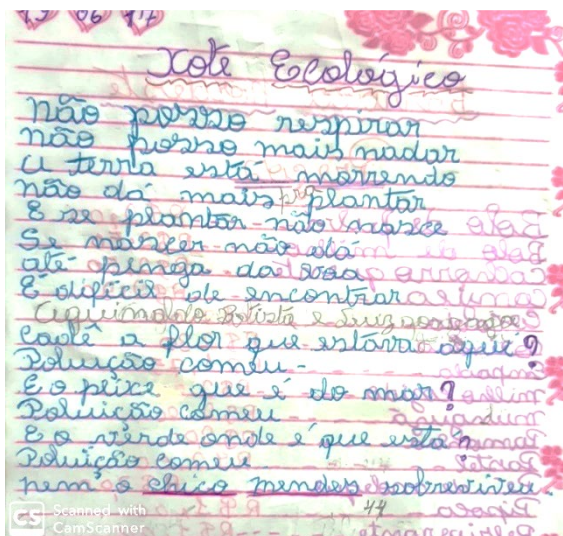 19 06 17
Xote Ecológico
não posso respirar
não posso mais nadar
a terra está morrendo
não dá mais pra plantar
E se plantar não nasce
Se nascer não dá
até pinga da boa
É difícil de encontrar
Aguinaldo Batista e Luiz gonzaga
Cadê a flor que estava aqui?
Poluição comeu -
E o peixe que é do mar?
Poluição comeu
E o verde onde é que está?
Poluição comeu
nem o chico mendes sobreviveu.
44
CS Scanned with
CamScanner